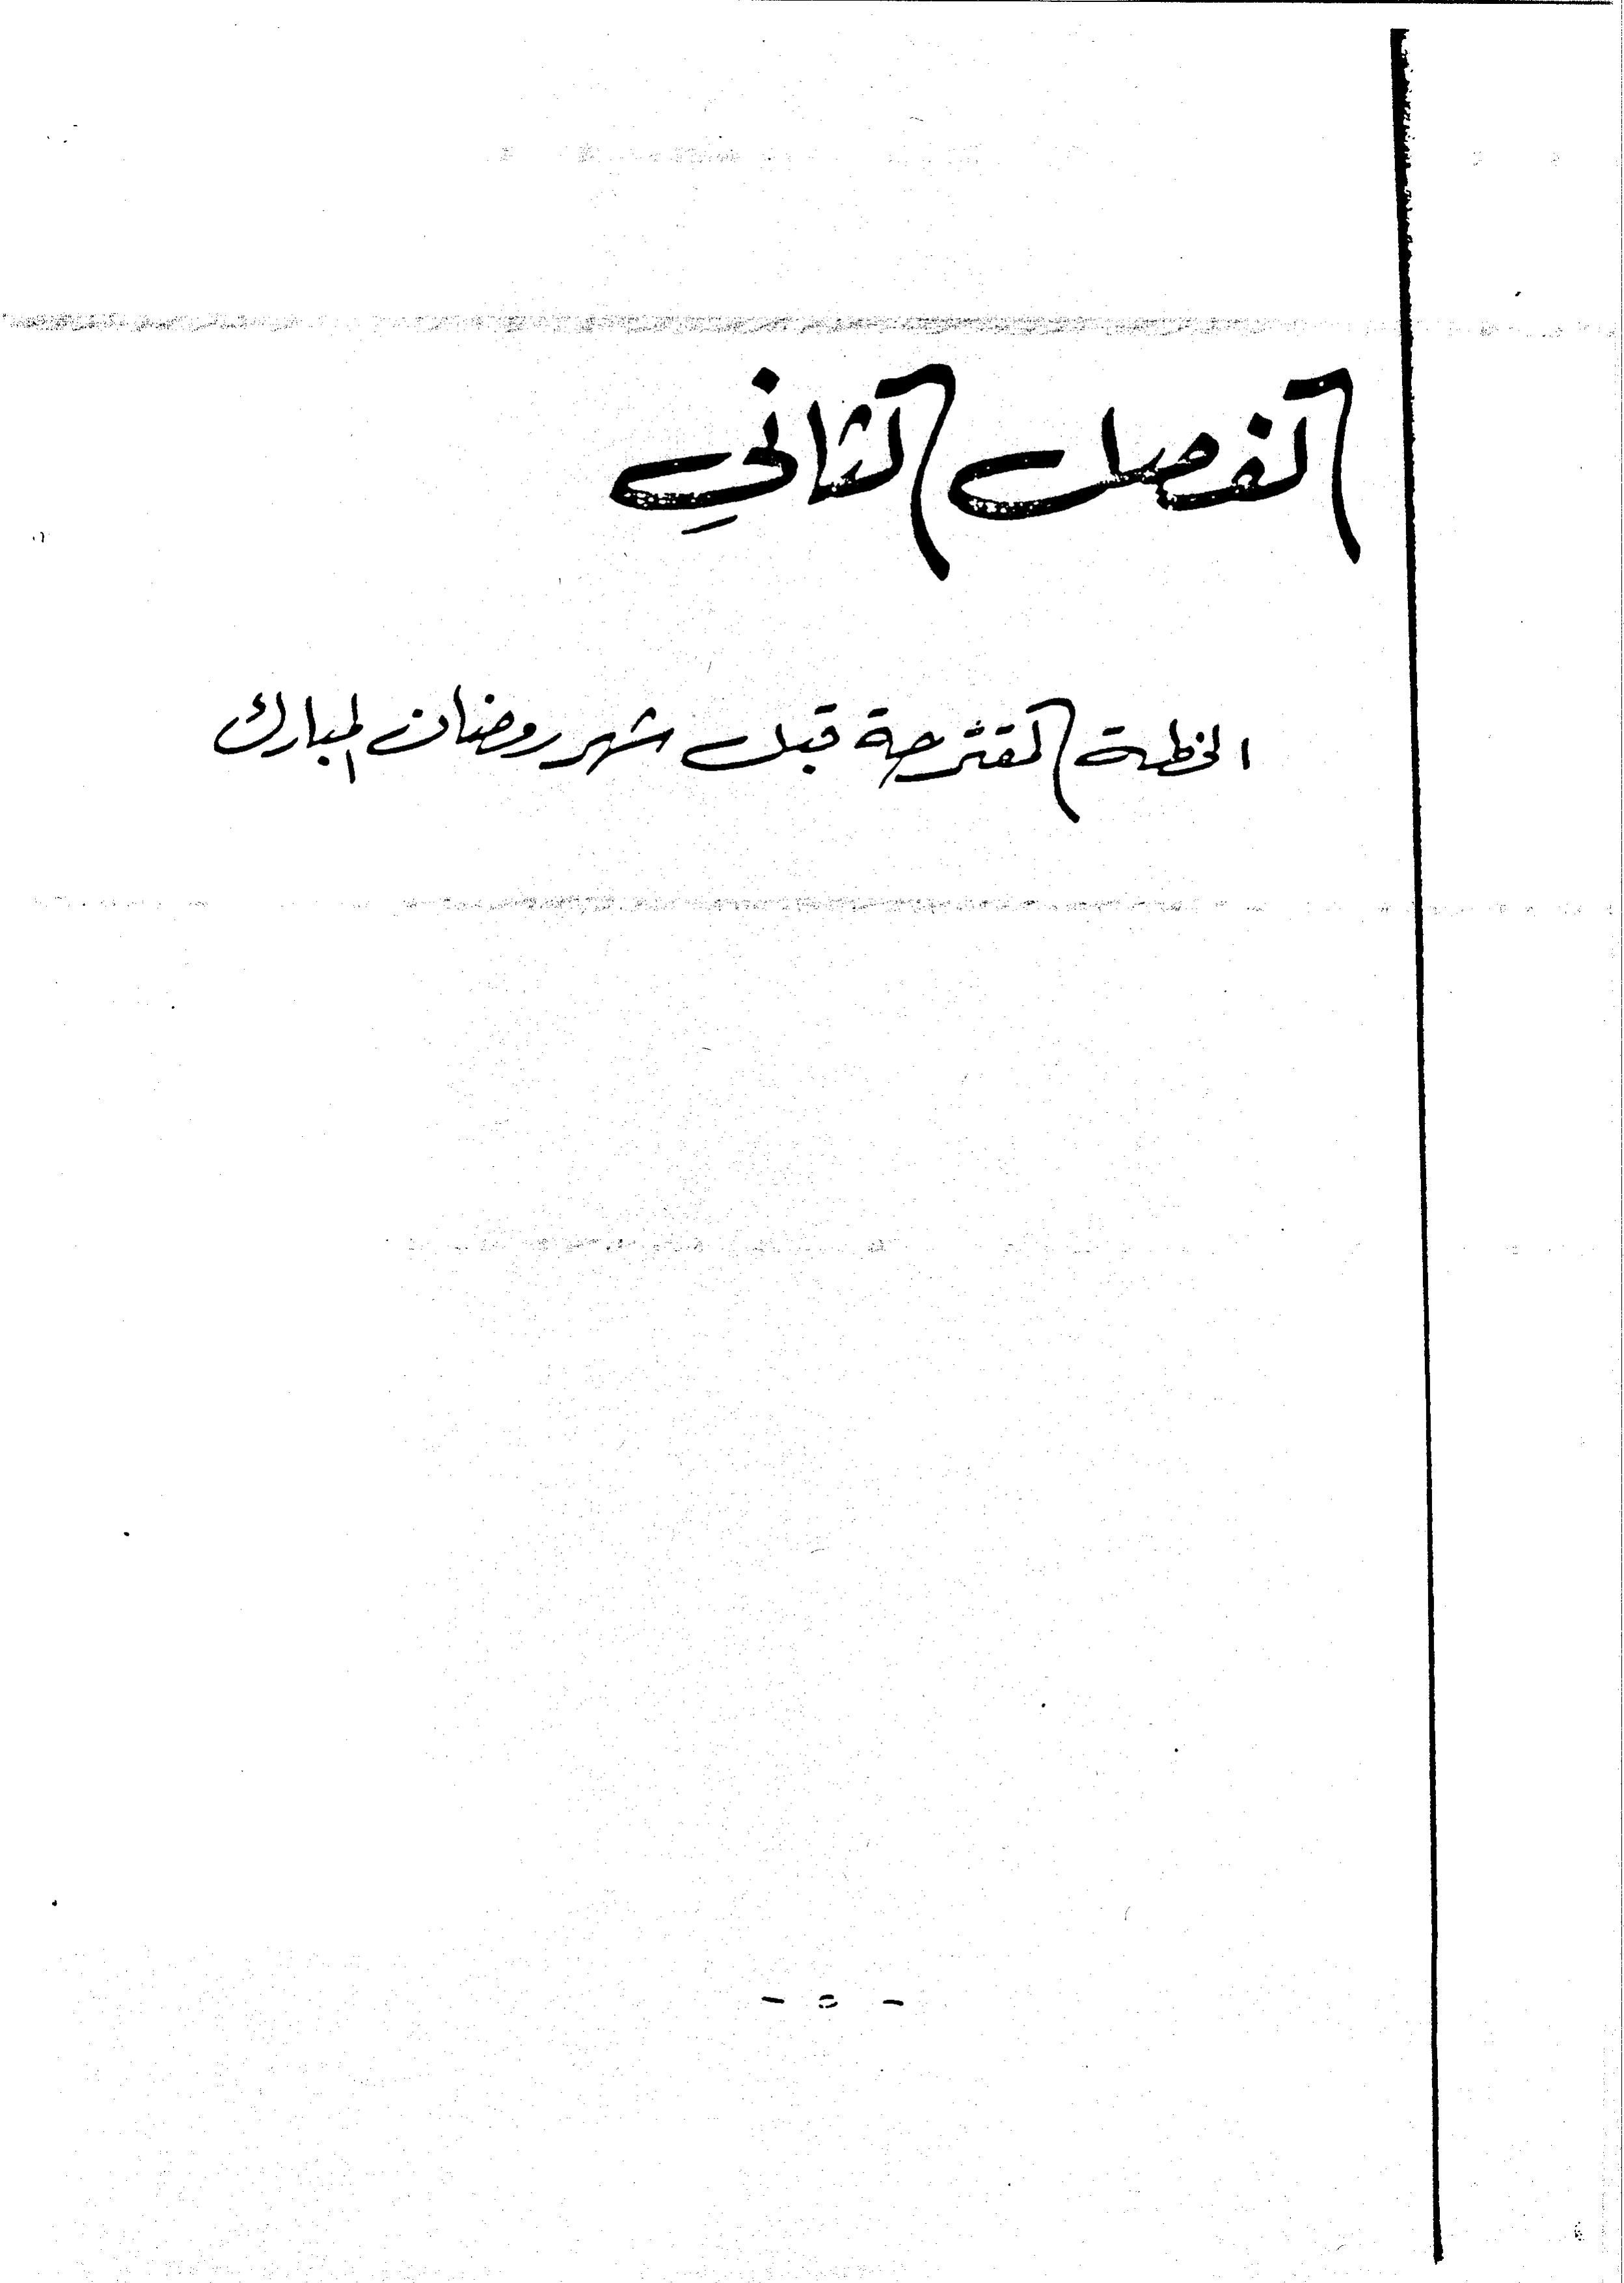 الفصل الثاني
الخطة المقترحة قبل شهر رمضان المبارك
- ٥ -